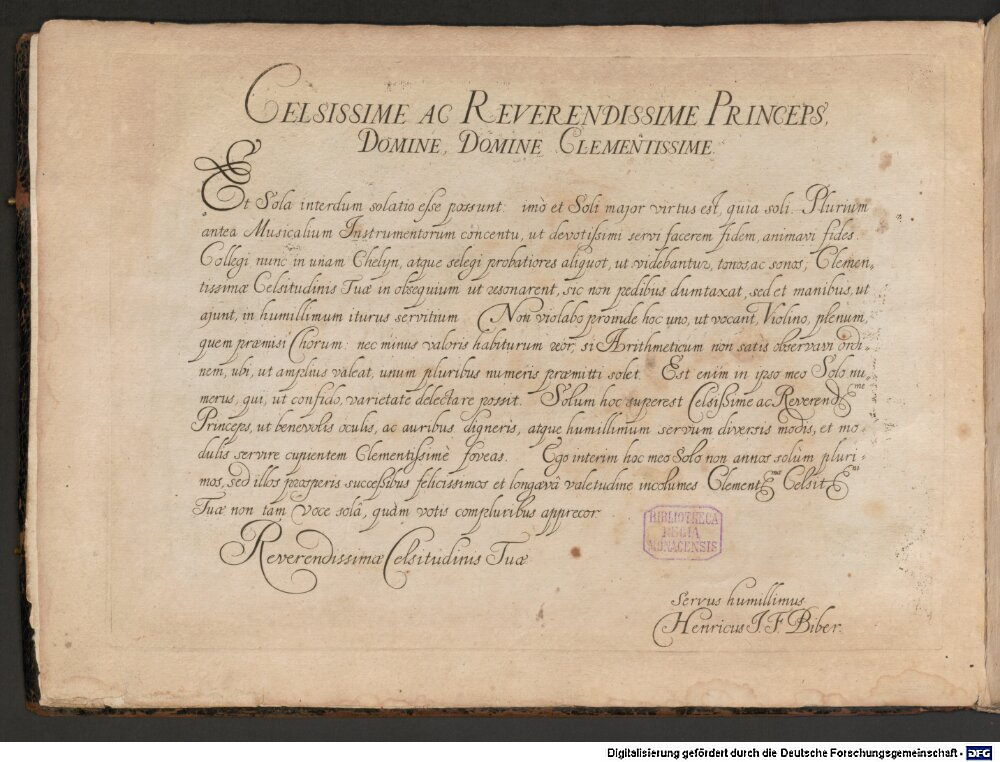 CELSISSIME AC REVERENDISSIME PRINCEPS,
DOMINE, DOMINE CLEMENTISSIME
Et Sola interdum solatio esse possunt: imò et Soli major virtus est, quia soli. Plurium
antea Musicalium Instrumentorum concentu, ut devotissimi servi facerem fidem, animavi fides.
Collegi nunc in unam Chelyn, atque selegi probatiores aliquot, ut videbantur, tonos, ac sonos, Clemen-
tissimæ Celsitudinis Tuæ in obsequium ut resonarent, sic non pedibus dumtaxat, sed et manibus, ut
ajunt, in humillimum iturus servitium. Non violabo proinde hoc uno, ut vocant, Violino, plenum,
quem præmisi Chorum: nec minus valoris habiturum reor, si Arithmeticum non satis observavi ordi-
nem, ubi, ut amplius valeat, unum pluribus numeris præmitti solet. Est enim in ipso meo Solo nu-
merus, qui, ut confido, varietate delectare possit. Solum hoc superest Celsissime ac Reverend:me
Princeps, ut benevolis oculis, ac auribus digneris, atque humillimum servum diversis modis, et mo-
dulis servire cupientem Clementissimè foveas. Ego interim hoc meo Solo non annos solùm pluri-
mos, sed illos prosperis successibus felicissimos et longævâ valetudine incolumes Clement:mæ Celsit:ni
Tuæ non tam Voce solâ, quàm votis compluribus apprecor
Reverendissimæ Celsitudinis Tuæ
BIBLIOTHECA
REGIA
MONACENSIS
Servus humillimus
Henricus J. F. Biber.
Digitalisierung gefördert durch die Deutsche Forschungsgemeinschaft - DFG